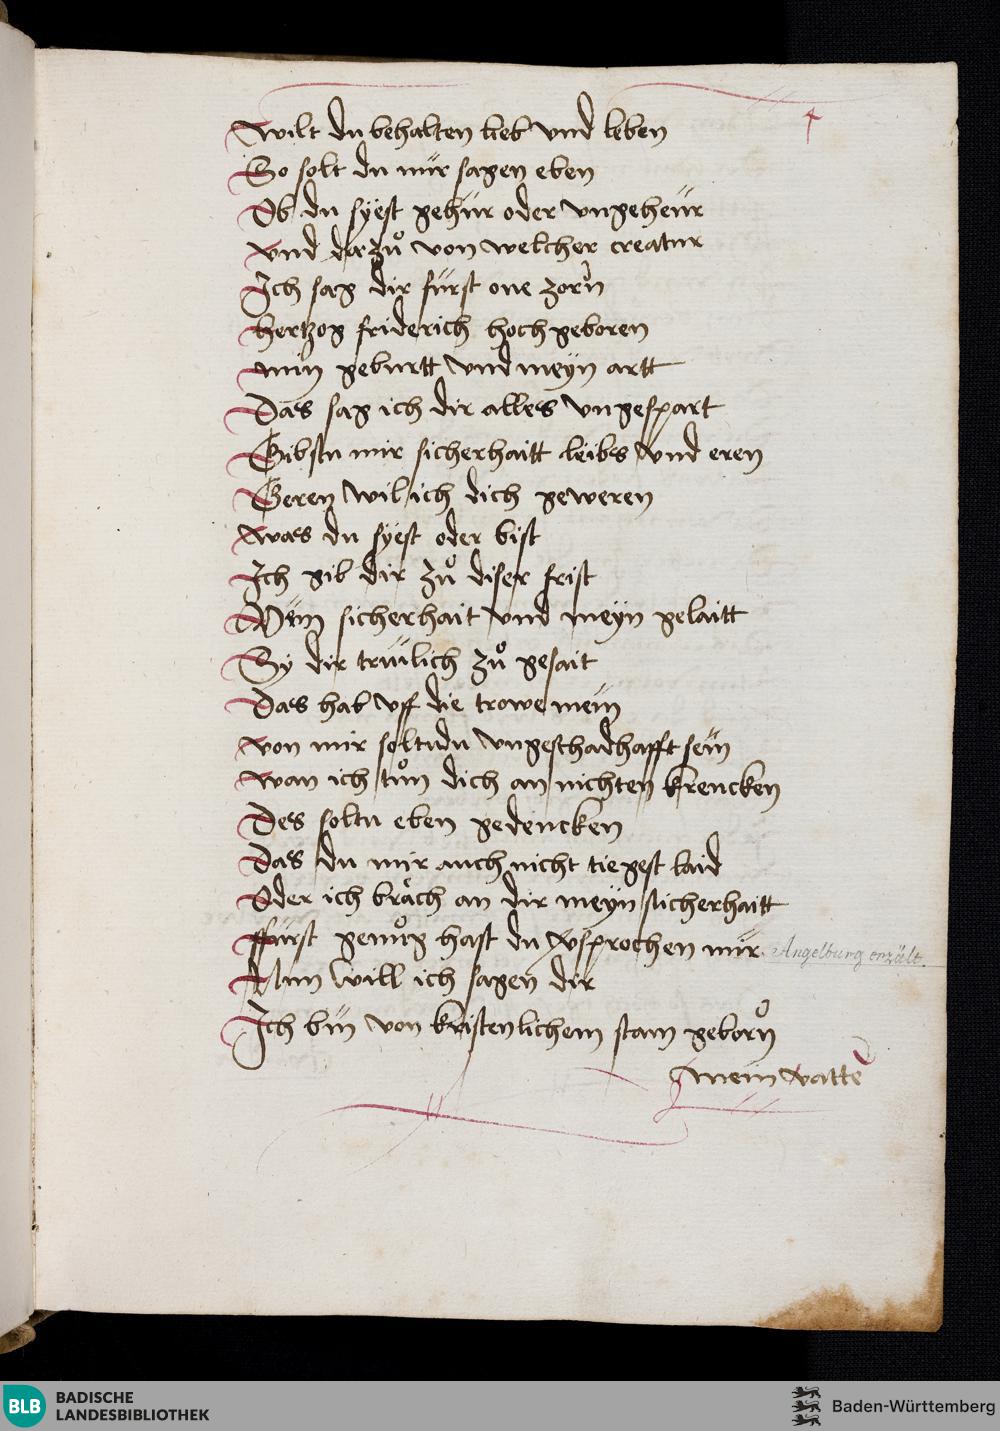 4
Wilt du behalten lieb vnd leben
So solt du mir sagen eben
Ob du syest gehür oder vngeheür
vnd dar zuͦ von welcher creatur
Ich sag dir fürst one zorn
hertzog friderich hoch geboren
min geburtt vnd meyn artt
Das sag ich dir alles vngespart
Gibstu mir sicherhaitt leibs vnd eren
Geren wil ich dich geweren
was du syest oder bist
Ich gib dir zuͦ diser frist
Mein sicherhait vnd meyn gelaitt
Sy dir truilich zuͦ gesait
Das hab vff die trowe mein
von mir soltudu vngeschadhafft sein
wan ich tuͦn dich an nichten krencken
Des soltu eben gedencken
Das du mir auch nicht tiegest laid
Oder ich braͤch an dir meyn sicherhaitt
ffürst genuͦg hast du vsprochen mir
Angelburg erzält.
Nun will ich sagen dir
Ich bin von kristenlichem stam geborn
mein vatter
BLB
BADISCHE
LANDESBIBLIOTHEK
Baden-Württemberg